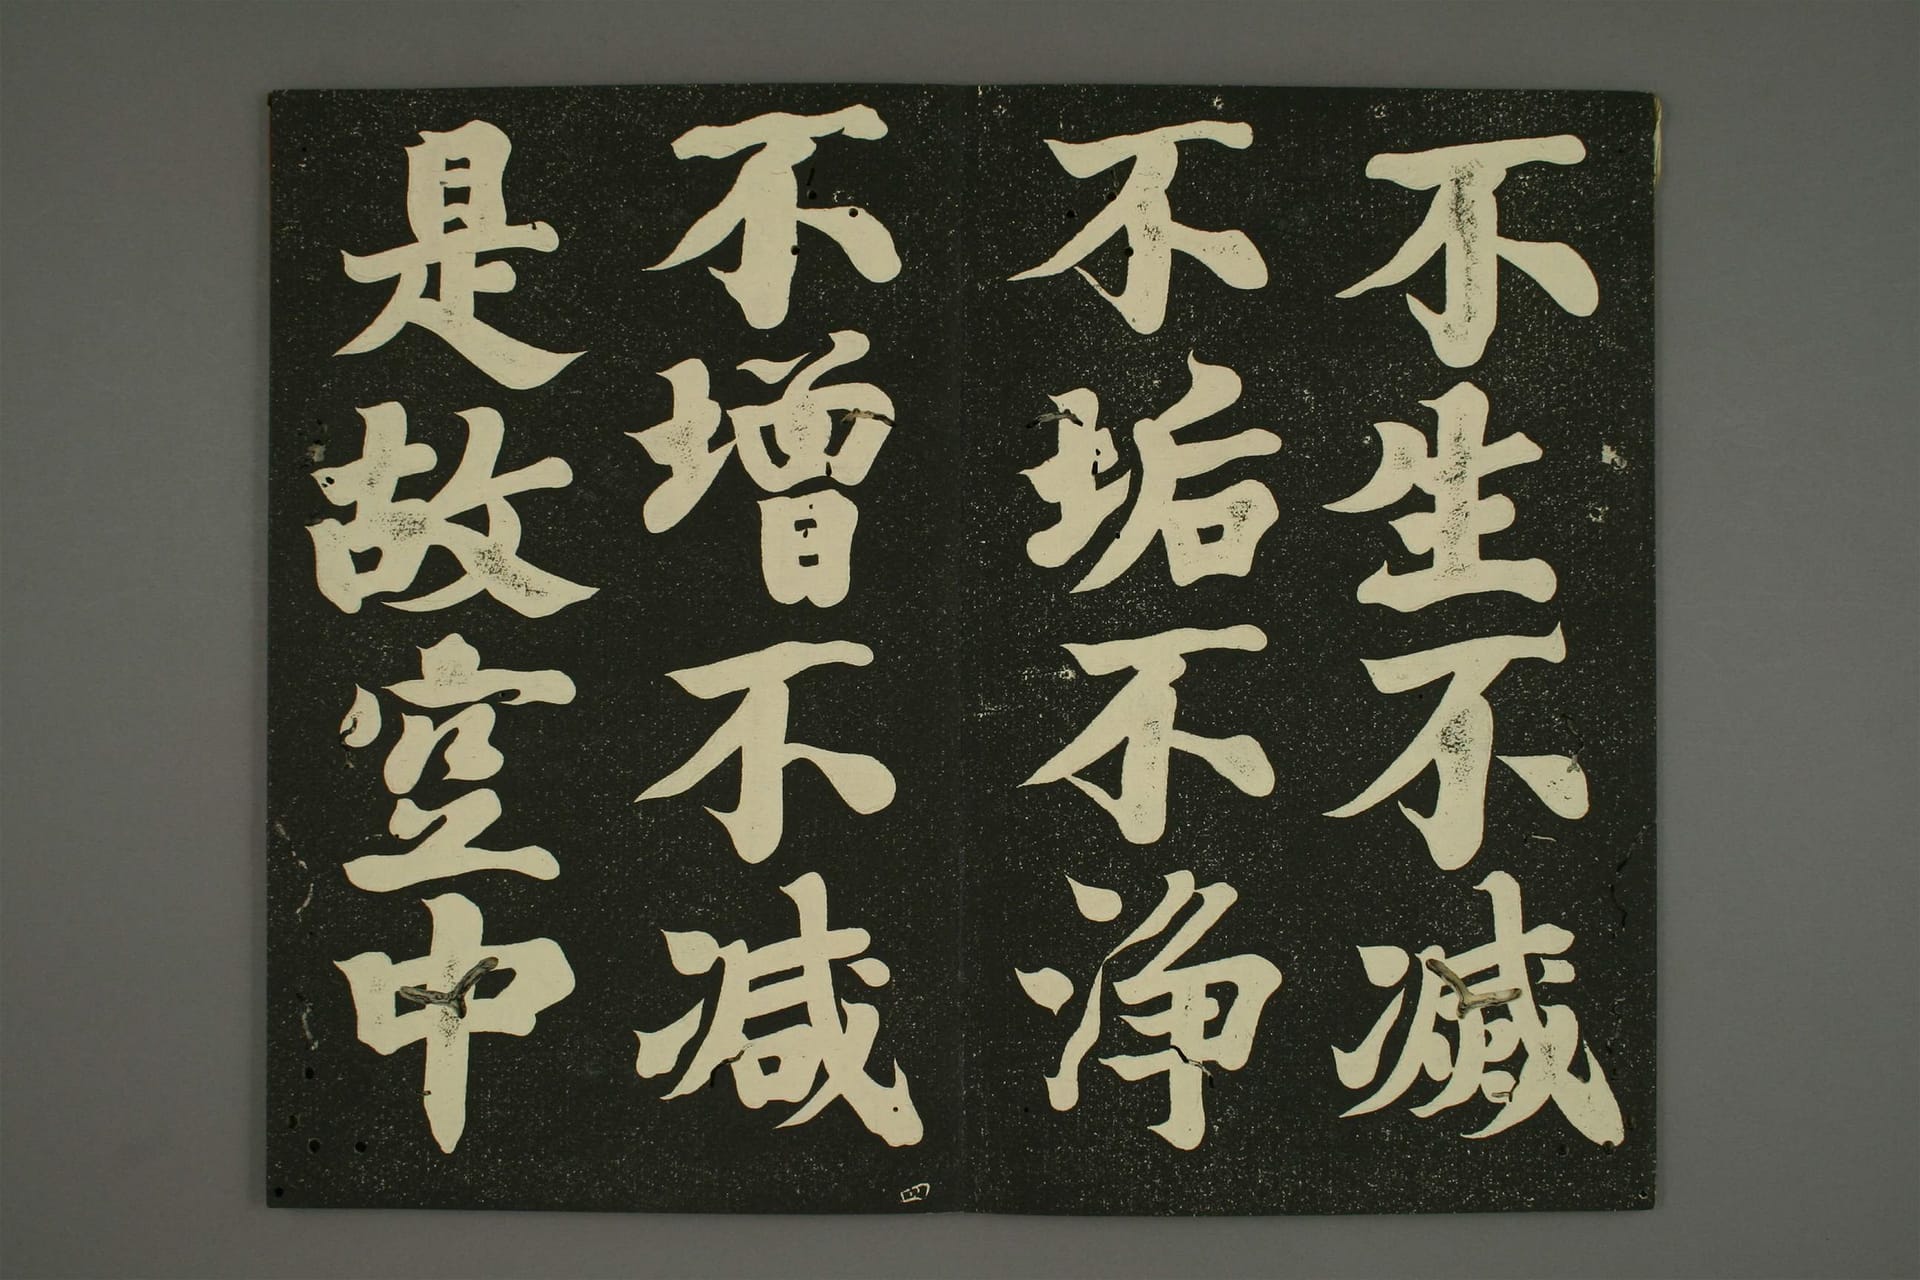 不生不滅
不垢不淨
不增不減
是故空中
四